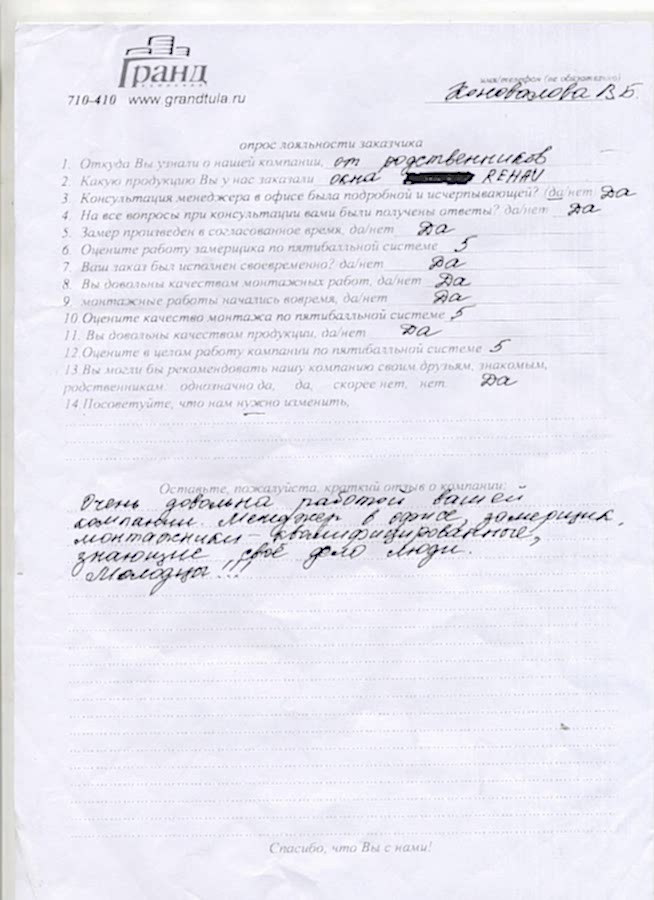 Гранд
КОМПАНИЯ
710-410 www.grandtula.ru
имя/телефон (не обязательно)
Коновалова В.Б.
опрос лояльности заказчика
1. Откуда Вы узнали о нашей компании, от родственников
2. Какую продукцию Вы у нас заказали окна REHAU
3. Консультация менеджера в офисе была подробной и исчерпывающей? (да/нет Да
4. На все вопросы при консультации вами были получены ответы? да/нет Да
5. Замер произведен в согласованное время, да/нет Да
6. Оцените работу замерщика по пятибалльной системе 5
7. Ваш заказ был исполнен своевременно? да/нет Да
8. Вы довольны качеством монтажных работ, да/нет Да
9. монтажные работы начались вовремя, да/нет Да
10.Оцените качество монтажа по пятибалльной системе 5
11. Вы довольны качеством продукции, да/нет Да
12.Оцените в целом работу компании по пятибалльной системе 5
13.Вы могли бы рекомендовать нашу компанию своим друзьям, знакомым,
родственникам. однозначно да, да, скорее нет, нет Да
14.Посоветуйте, что нам нужно изменить,
Оставьте, пожалуйста, краткий отзыв о компании:
Очень довольна работой вашей
компании. Менеджер в офисе, замерщик,
монтажники – квалифицированные,
знающие своё дело люди.
Молодцы!!!
Спасибо, что Вы с нами!